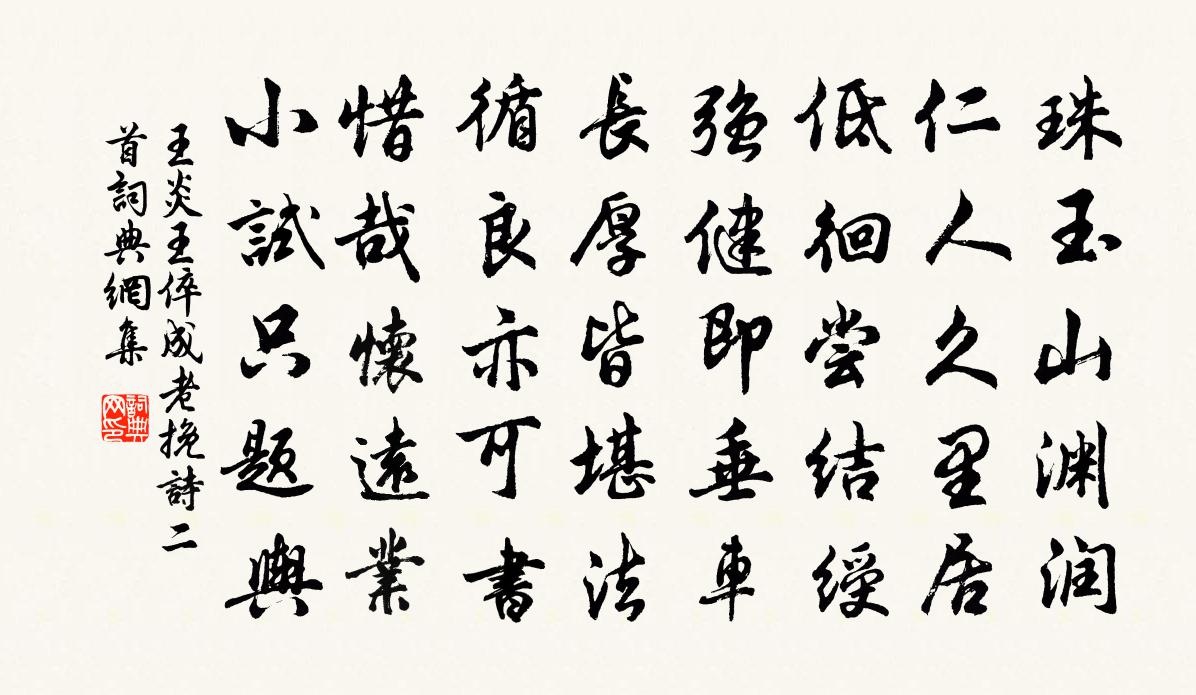 珠玉山渊润
仁人久里居
低徊尝结绶
强健即垂車
長厚皆堪法
循良亦可書
惜哉懷遠業
小試只题輿
王炎王倅成老挽詩二
首詞典網集
詞典网印